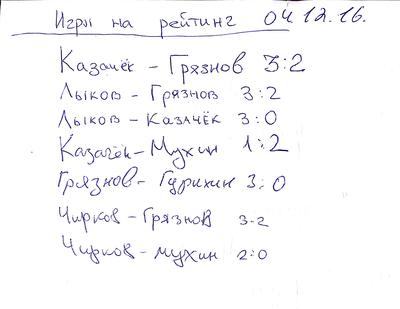 Игры на рейтинг 04.12.16.
Казачёк - Грязнов 3:2
Лыков - Грязнов 3:2
Лыков - Казачёк 3:0
Казачёк - Мухин 1:2
Грязнов - Гурихин 3:0
Чирков - Грязнов 3-2
Чирков - Мухин 2:0